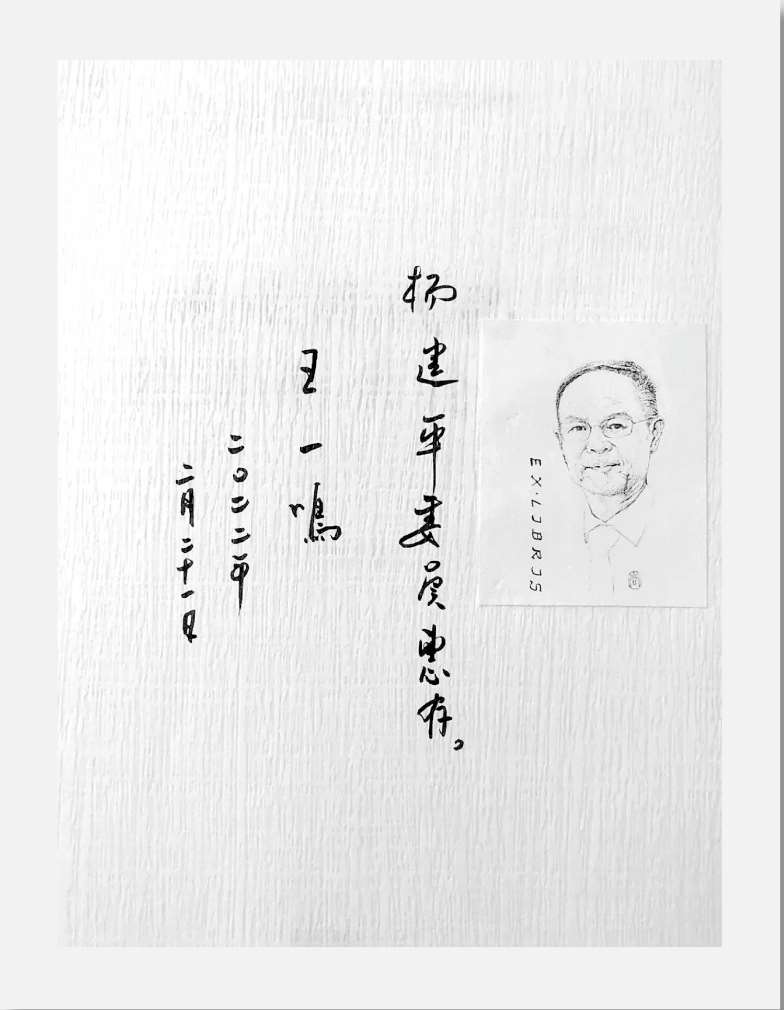 杨建平委员惠存。
王一鸣
二〇二二年
二月二十一日
EX·LIBRIS